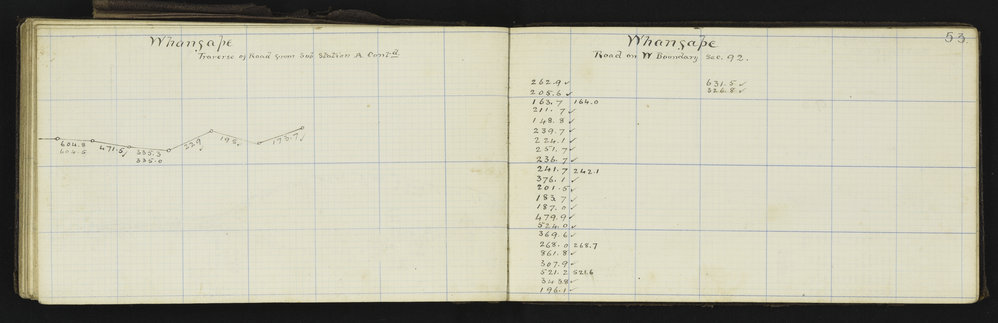 Whangape
Traverse of Road from Sub Station A Contd
604.8 471.5✓ 335.3 229✓ 195✓ 193.7✓
604.5 335.0
53.
Whangape
Road on W Boundary Sec. 92.
262.9✓ 631.5✓
205.6✓ 326.8✓
163.7 164.0
211.7✓
148.8✓
239.7✓
224.1✓
251.7✓
236.7✓
241.7 242.1
376.1✓
201.5✓
183.7✓
187.0✓
479.9✓
524.0✓
369.6✓
268.0 268.7
861.8✓
307.9✓
521.2 521.6
345.8✓
196.1✓